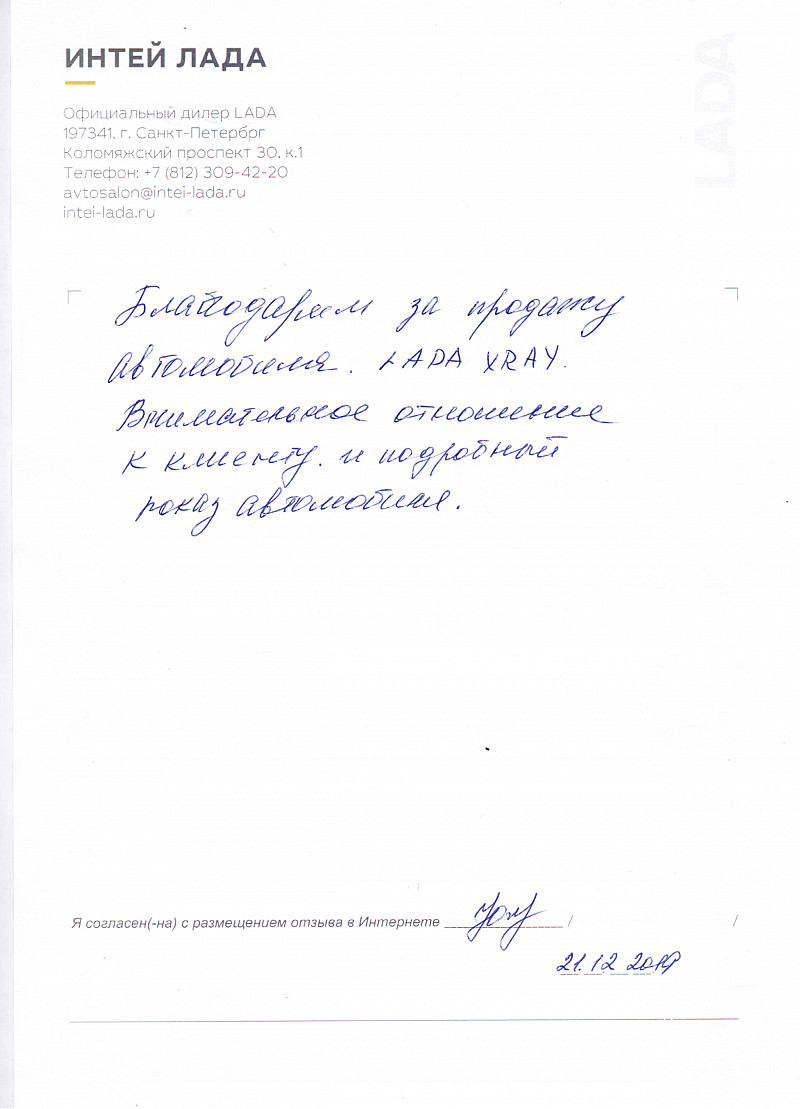 ИНТЕЙ ЛАДА
LADA
Официальный дилер LADA
197341, г. Санкт-Петербрг
Коломяжский проспект 30, к.1
Телефон: +7 (812) 309-42-20
avtosalon@intei-lada.ru
intei-lada.ru
Благодарим за продажу
автомобиля. LADA XRAY.
Внимательное отношение
к клиенту. и подробный
показ автомобиля.
Я согласен(-на) с размещением отзыва в Интернете / /
21.12 2019